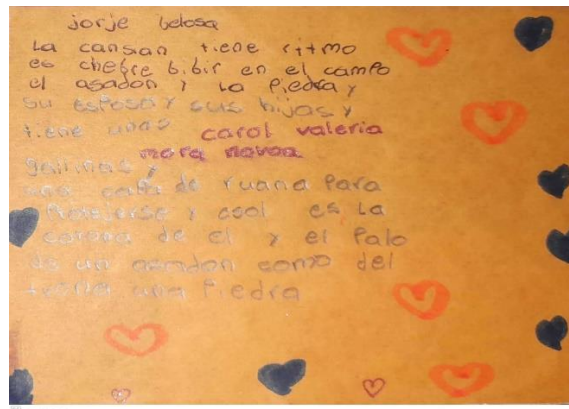 jorje belosa
La cansian tiene ritmo
es chebre bibir en el campo
el asadon y La Piedra y
su esposa y sus hijas y
tiene unas carol valeria
mora novoa
gallinas y
una capa de ruana Para
Protejerse y esol es La
corona de el y el Palo
de un asadon como del
una Piedra